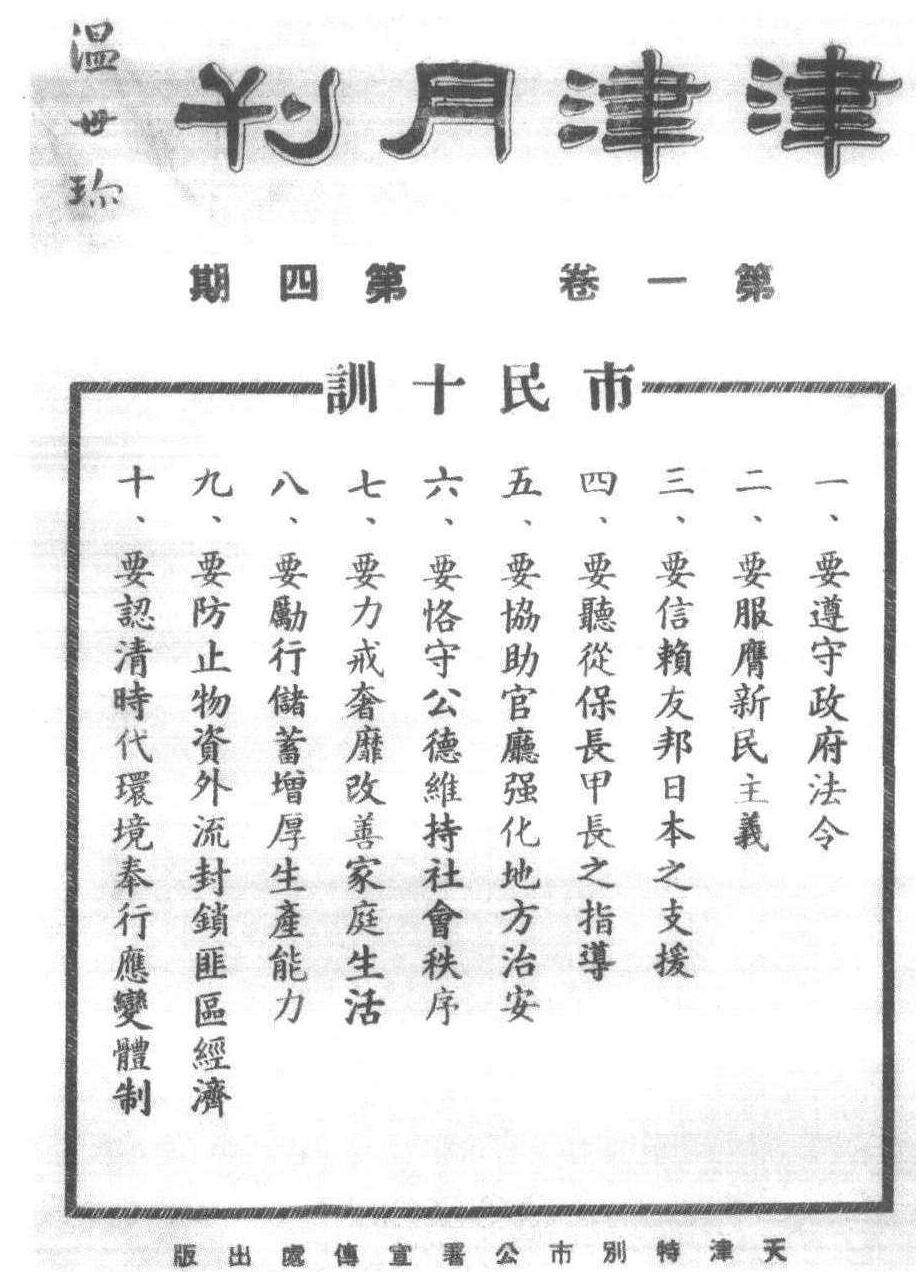 津津月刊
溫世珍
第一卷 第四期
市民十訓
一、要遵守政府法令
二、要服膺新民主義
三、要信賴友邦日本之支援
四、要聽從保長甲長之指導
五、要協助官廳强化地方治安
六、要恪守公德維持社會秩序
七、要力戒奢靡改善家庭生活
八、要勵行儲蓄增厚生產能力
九、要防止物資外流封鎖匪區經濟
十、要認清時代環境奉行應變體制
天津特別市公署宣傳處出版